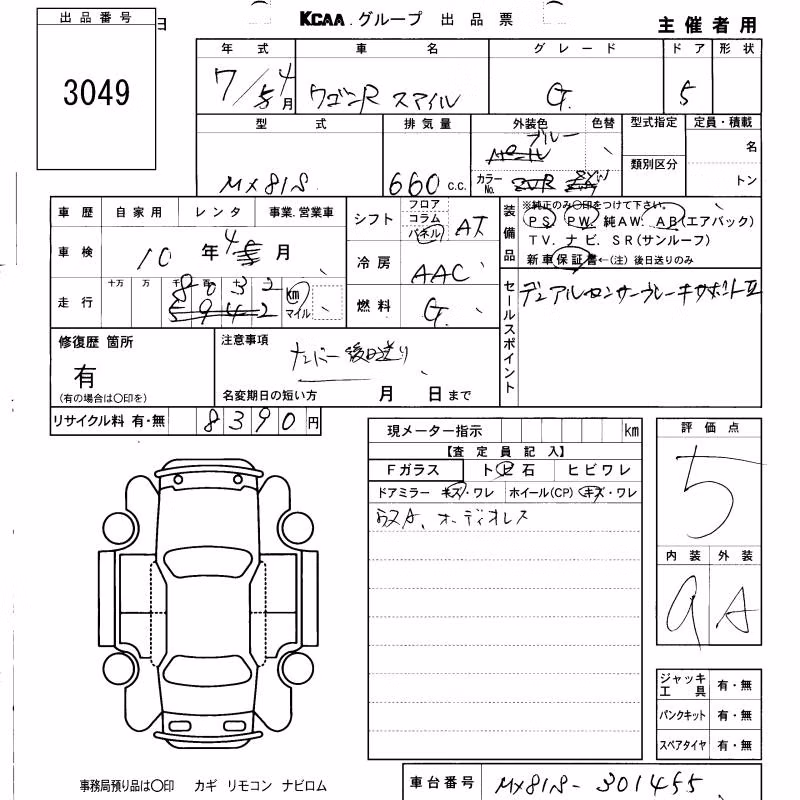 KCAA グループ 出品票
日
主催者用
出品番号
3049
年式 車名 グレード ドア 形状
7/ 4月 ワゴンR スマイル G 5
型式 排気量 外装色 色替 型式指定 定員・積載
ブルー
名
類別区分
MX81S 660 c.c. カラーNo. トン
車歴 自家用 レンタ 事業.営業車
シフト フロア コラム パネル AT
装備品
※純正のみ○印をつけて下さい。
PS. PW. 純AW. AB(エアバック)
TV. ナビ. SR(サンルーフ)
新車保証書←(注) 後日送りのみ
車検 10 年 4 月
冷房 AAC
走行 十万 万 千 百 十 一
8032
5942
km マイル
燃料 G
セールスポイント
デュアルセンサーブレーキサポートⅡ
修復歴 箇所
有
(有の場合は○印を)
注意事項
ナンバー後日送り
名変期日の短い方 月 日まで
リサイクル料 有・無 8390 円
現メーター指示 km
【査定員記入】
Fガラス トビ石 ヒビワレ
ドアミラー キズ・ワレ ホイール(CP) キズ・ワレ
オーディオレス
評価点
5
内装 外装
9 A
ジャッキ工具 有・無
パンクキット 有・無
スペアタイヤ 有・無
事務局預り品は○印 カギ リモコン ナビロム
車台番号 MX81S-301455